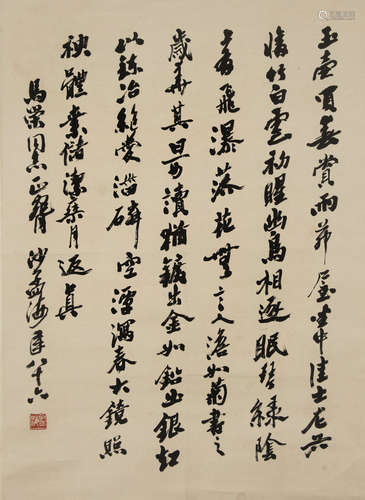 玉壺買春賞雨茅屋坐中佳士左右
脩竹白雲初晴幽鳥相逐眠琴綠陰
上有飛瀑落花無言人澹如菊書之
歲華其曰可讀猶鑛出金如鉛出銀超
心鍊冶絕愛淄磷空潭瀉春古鏡照
神體素儲潔乘月返真
同志正 沙孟海年八十六